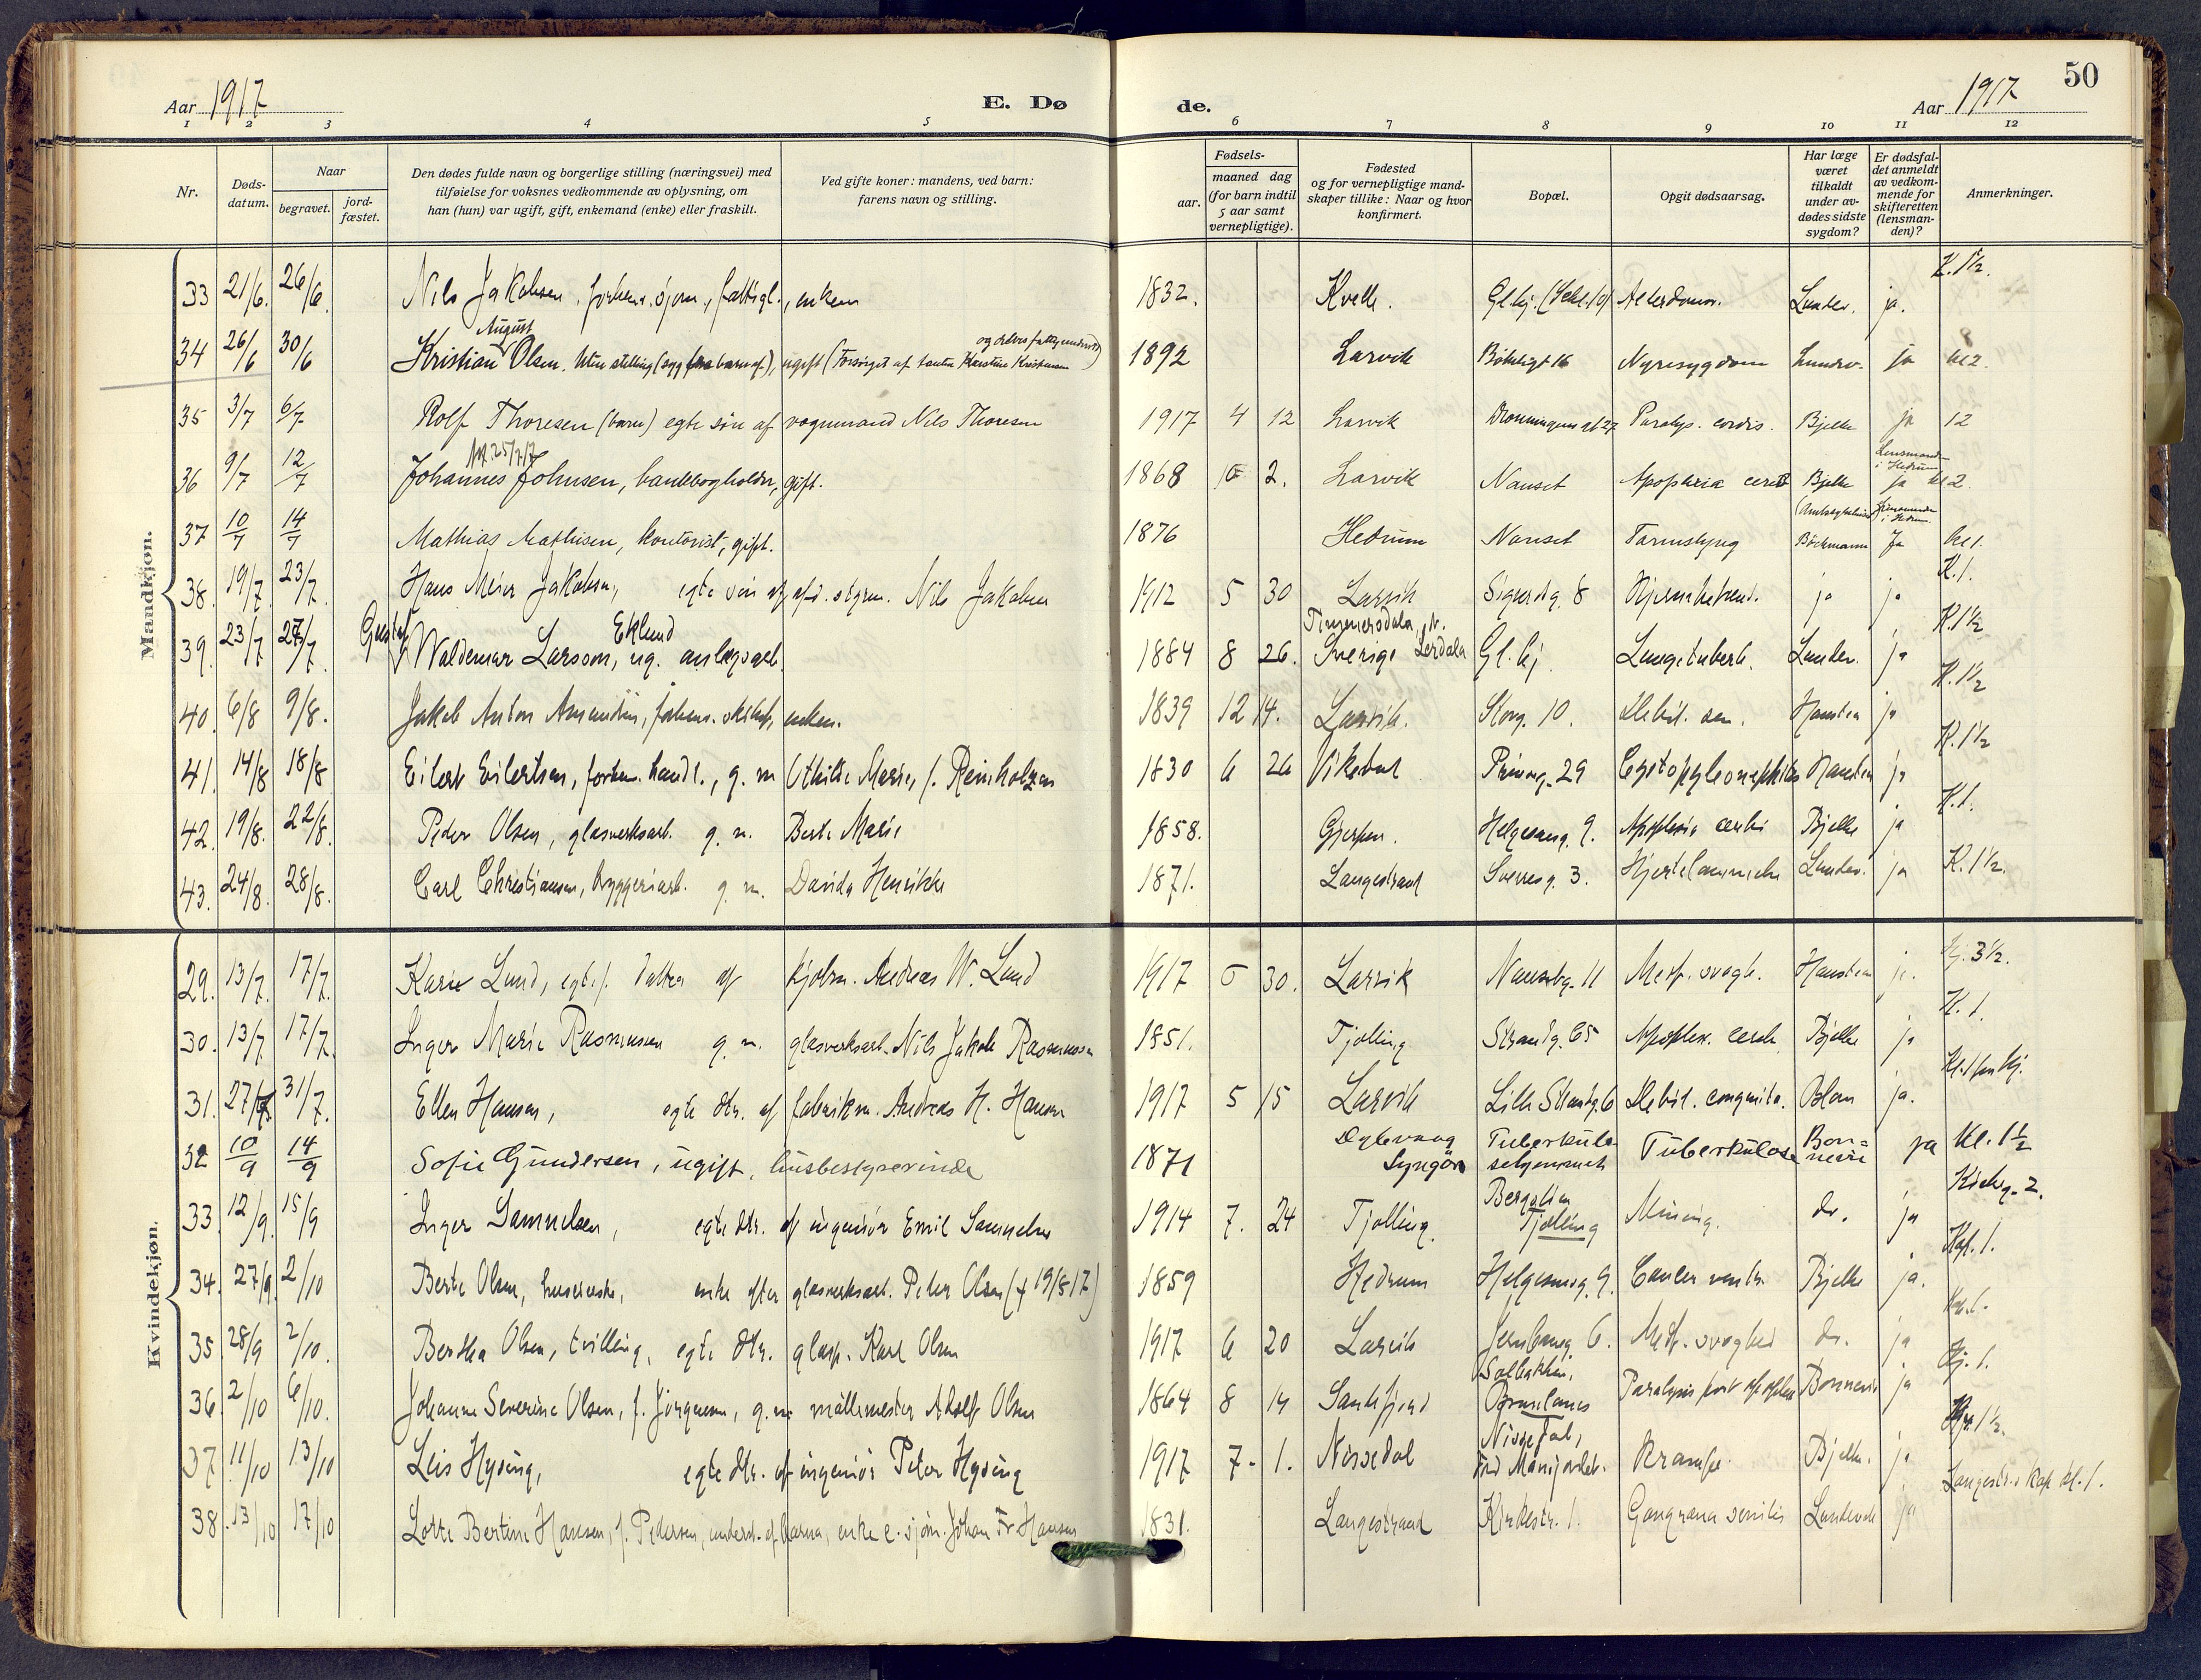 Aar 1917
E. Døde.
Aar 1917
50
1 2 3 4 5 6 7 8 9 10 11 12
Nr.
Døds-datum.
Naar
begravet.
jord-fæstet.
Den dødes fulde navn og borgerlige stilling (næringsvei) med
tilføielse for voksnes vedkommende av oplysning, om
han (hun) var ugift, gift, enkemand (enke) eller fraskilt.
Ved gifte koner: mandens, ved barn:
farens navn og stilling.
Fødsels-
aar.
maaned dag
(for barn indtil
5 aar samt
vernepligtige).
Fødested
og for vernepligtige mand-
skaper tillike: Naar og hvor
konfirmert.
Bopæl.
Opgit dødsaarsag.
Har læge
været
tilkaldt
under av-
dødes sidste
sygdom?
Er dødsfal-
det anmeldt
av vedkom-
mende for
skifteretten
(lensman-
den)?
Anmerkninger.
Mandkjøn.
33 21/6. 26/6. Nils Jakobsen, forhenv. sjøm., fattigl., enkem 1832. Kvelle. Alderdomsv. Lunder. ja. K. 1½.
34 26/6 30/6 Kristian August Olsen. Uten stilling (syg fra barn af), ugift (Forsørget af tanten Karoline Kristensen 1892 Larvik Bøkeligt 16 Nyresygdom ja kl 2.
35 3/7 6/7 Rolf Thoresen (barn) egte søn af vognmand Nils Thoresen 1917 4 12 Larvik Dronningensgt 27 Paralys. cordis. Bjelke ja 12
36 9/7 12/7 Johannes Johnsen, bankbogholder, gift. 1868 2. Larvik Nanset Apoplexia cerebri Bjelke Lensmanden i Hedrum ja kl 2.
37 10/7 14/7 Mathias Mathisen, kontorist, gift. 1876 Hedrum Nanset Tarmslyng Böckmann Ja kl 1.
38. 19/7. 23/7. Hans Meier Jakobsen, egte søn af afd. styrm. Nils Jakobsen 1912 5 30 Larvik Sigurdsg. 8 ja ja K. 1.
39. 23/7 27/7 Gustaf Waldemar Larsson Eklund, ug. anlægsarb. 1884 8 26. Timmersdala, Lerdala Sverige Gl. kj. Lungetuberk. Lunder. ja K. 1½
40. 6/8 9/8. Jakob Anton Amundsen, forhenv. enkem. 1839 12 14. Larvik. Storg. 10. Debil. sen. Hansteen ja K. 1½
41. 14/8 18/8 Eilert Eilertsen, forhenv. handl., g. m Othilie Marie, f. Reinholtzen 1830 6 26 Vikedal Prinseg. 29 Cystopyelonephritis Hansteen ja K. 1½
42. 19/8. 22/8. Peder Olsen, glasverksarb. g. m. Berte Marie 1858. Gjerpen. Helgesensg. 9. Apoplexia cerebri Bjelke ja K. 1.
43. 24/8. 28/8. Carl Christiansen, bryggeriarb. g. m. Davida Henrikke 1871. Langestrand Sverresg. 3. Hjertelammelse Lunder. ja K. 1½.
Kvindekjøn.
29. 13/7. 17/7. Karin Lund, egtef. datter af kjøbm. Andreas W. Lund 1917 5 30. Larvik Nansetg. 11 Medf. svagh. Hansteen ja. Kj. 3½.
30. 13/7 17/7. Inger Marie Rasmussen g. m. glasverksarb. Nils Jakob Rasmussen 1851. Tjølling Strandg. 65 Apoplex. cereb. Bjelke ja K. 1.
31. 27/7 31/7. Ellen Hansen, egte dtr. af fabrikm. Andreas H. Hansen 1917 5 15 Larvik Lille Strandg. 6 Debil. congenita. Blom ja.
32 10/9 14/9 Sofie Gundersen, ugift, husbestyrerinde 1871 Dybevaag Lyngør Tuberkulosehjemmet Tuberkulose Bonnevie ja Kl. 1½
33. 12/9. 15/9 Inger Samuelsen, egte dtr. af ingeniør Emil Samuelsen 1914 7. 24 Tjølling. Tjølling Mening. do. ja Kirkeg. 2.
34. 27/9 2/10 Berte Olsen, enke efter glasverksarb. Peder Olsen († 19/8 17) 1859 Hedrum Helgesensg. 9. Cancer ventr. Bjelke ja. Kap. 1.
35. 28/9 2/10. Bertha Olsen, tvilling, egte dtr. glasp. Karl Olsen 1917 6 20 Larvik Jernbaneg. 6. Medf. svaghed do. ja Kap. 1.
36. 2/10 6/10. Johanne Severine Olsen, f. Jørgensen, g. m. møllemester Adolf Olsen 1864 8 14 Sandefjord Solbakken, Brunlanes Paralysis post apoplex Bonnevie ja Kj. 1.
37 11/10 13/10 Leis Hysing, egte dtr. af ingeniør Peter Hysing 1917 7. 1. Nissedal Nissedal, Krampe. Bjelke. ja Kap. 1½.
38. 13/10 17/10 Lotte Bertine Hansen, f. Pedersen, underst. af børna, enke e. sjøm. Johan Fr Hansen 1831. Langestrand Kirkestr. 1. Gangræna senilis Lundevold ja Langestr.s kap kl. 1.